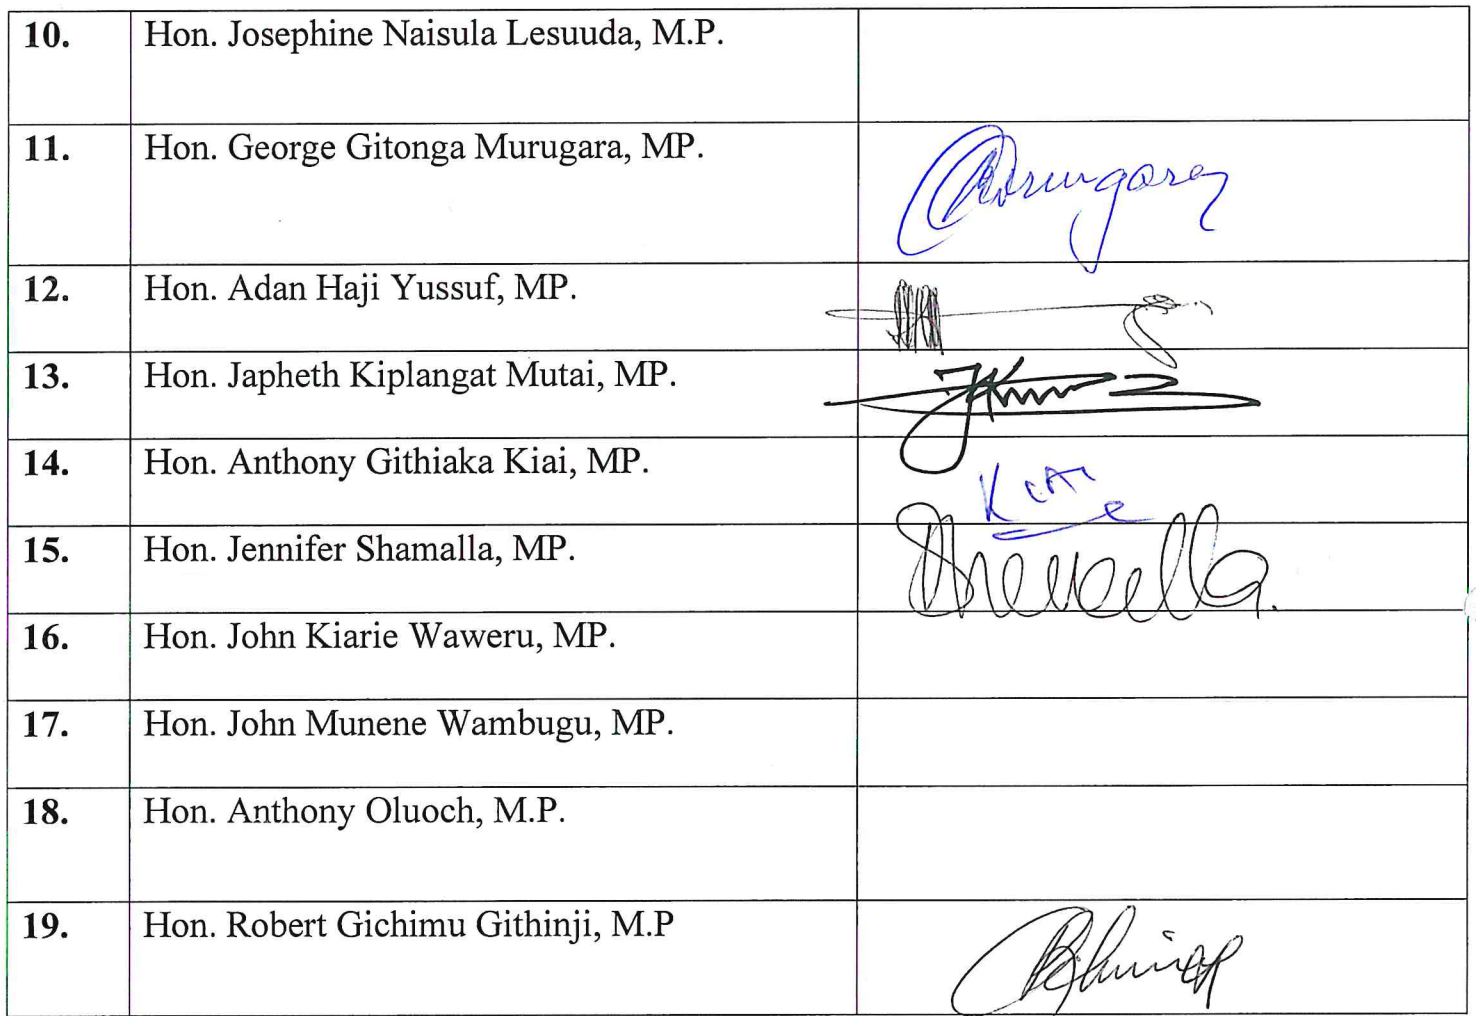 10. Hon. Josephine Naisula Lesuuda, M.P.
11. Hon. George Gitonga Murugara, MP.
12. Hon. Adan Haji Yussuf, MP.
13. Hon. Japheth Kiplangat Mutai, MP.
14. Hon. Anthony Githiaka Kiai, MP. Kiai
15. Hon. Jennifer Shamalla, MP.
16. Hon. John Kiarie Waweru, MP.
17. Hon. John Munene Wambugu, MP.
18. Hon. Anthony Oluoch, M.P.
19. Hon. Robert Gichimu Githinji, M.P